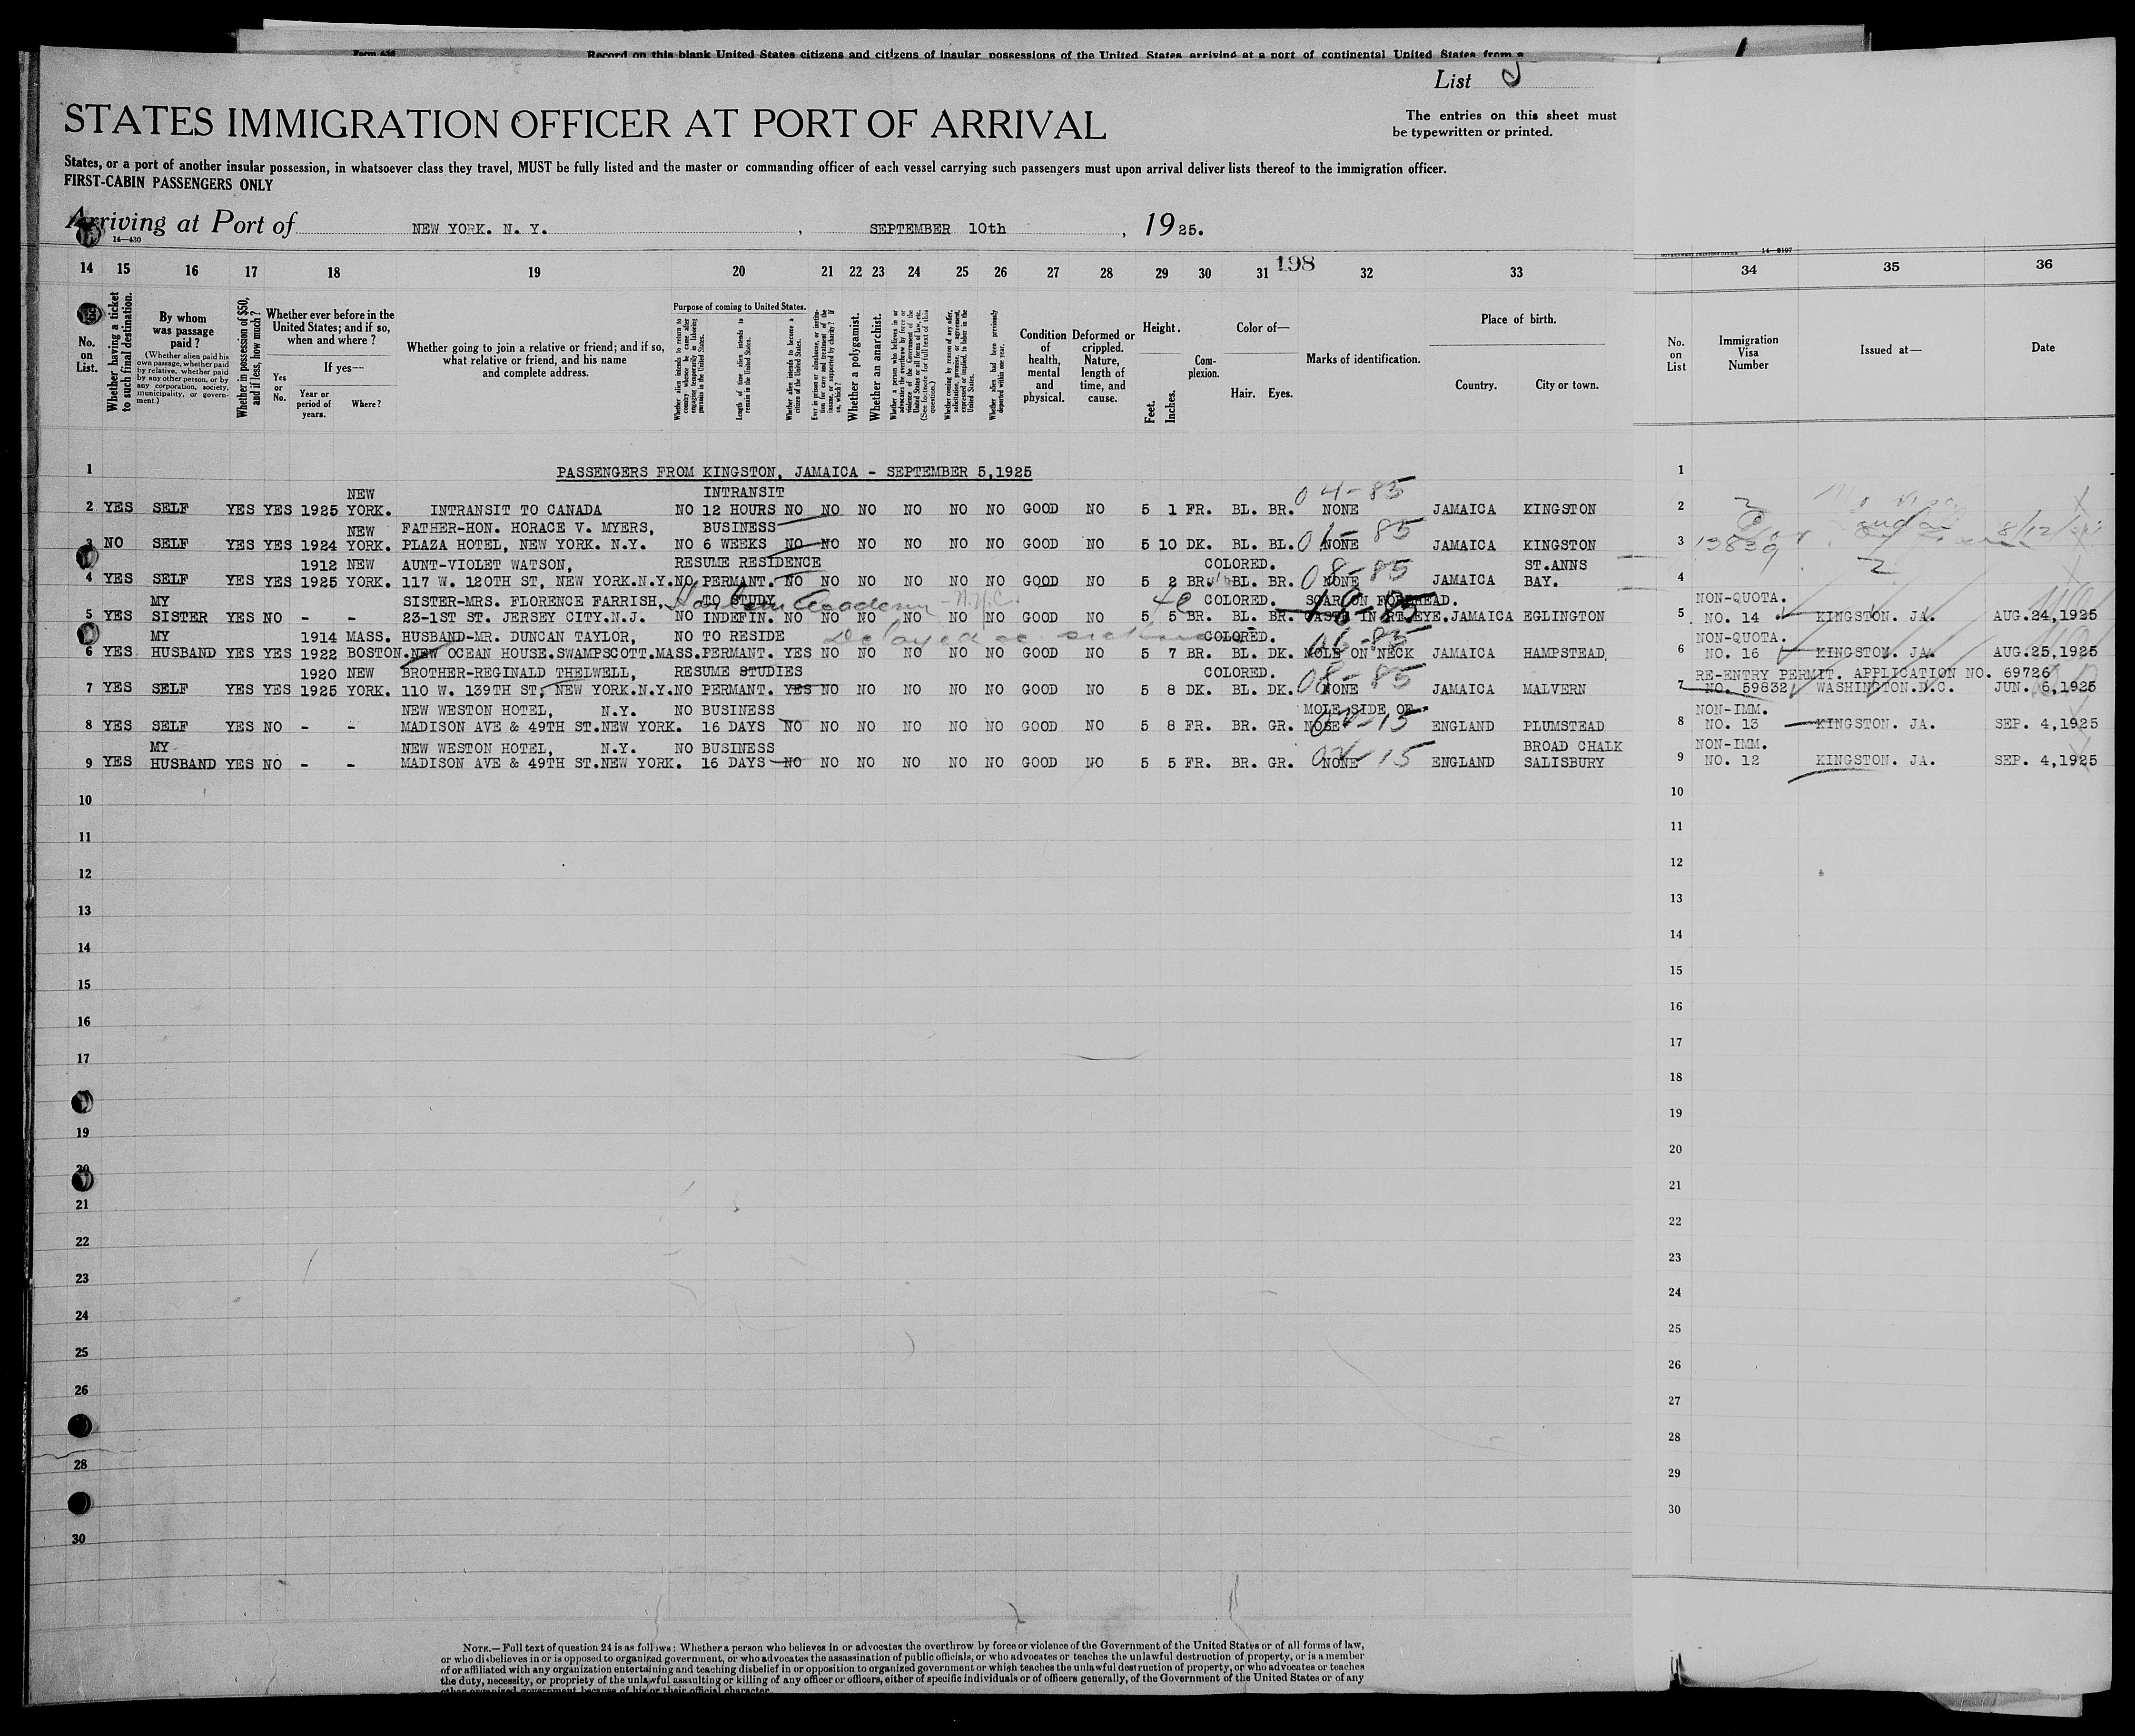 Form 630 Record on this blank United States citizens and citizens of insular possessions of the United States arriving at a port of continental United States from a
List
STATES IMMIGRATION OFFICER AT PORT OF ARRIVAL
The entries on this sheet must
be typewritten or printed.
States, or a port of another insular possession, in whatsoever class they travel, MUST be fully listed and the master or commanding officer of each vessel carrying such passengers must upon arrival deliver lists thereof to the immigration officer.
FIRST-CABIN PASSENGERS ONLY
Arriving at Port of NEW YORK. N. Y. , SEPTEMBER 10th , 1925.
14—430
198
14 15 16 17 18 19 20 21 22 23 24 25 26 27 28 29 30 31 32 33 34 35 36
No. on List.
Whether having a ticket to such final destination.
By whom was passage paid?
(Whether alien paid his own passage, whether paid by relative, whether paid by any other person, or by any corporation, society, municipality, or government.)
Whether in possession of $50, and if less, how much?
Whether ever before in the United States; and if so, when and where?
If yes—
Yes or No.
Year or period of years.
Where?
Whether going to join a relative or friend; and if so, what relative or friend, and his name and complete address.
Purpose of coming to United States.
Whether alien intends to return to country whence he came after engaging temporarily in laboring pursuits in the United States.
Length of time alien intends to remain in the United States.
Whether alien intends to become a citizen of the United States.
Ever in prison or almshouse, or institution for care and treatment of the insane, or supported by charity? If so, which?
Whether a polygamist.
Whether an anarchist.
Whether a person who believes in or advocates the overthrow by force or violence of the Government of the United States or all forms of law, etc. (See footnote for full text of this question.)
Whether coming by reason of any offer, solicitation, promise, or agreement, expressed or implied, to labor in the United States.
Whether alien had been previously deported within one year.
Condition of health, mental and physical.
Deformed or crippled. Nature, length of time, and cause.
Height.
Feet. Inches.
Complexion.
Color of—
Hair. Eyes.
Marks of identification.
Place of birth.
Country. City or town.
No. on List
Immigration Visa Number
Issued at—
Date
1 PASSENGERS FROM KINGSTON, JAMAICA - SEPTEMBER 5,1925 1
NEW INTRANSIT 04-85
2 YES SELF YES YES 1925 YORK. INTRANSIT TO CANADA NO 12 HOURS NO NO NO NO NO NO GOOD NO 5 1 FR. BL. BR. NONE JAMAICA KINGSTON 2
NEW FATHER-HON. HORACE V. MYERS, BUSINESS 85
3 NO SELF YES YES 1924 YORK. PLAZA HOTEL, NEW YORK. N.Y. NO 6 WEEKS NO NO NO NO NO NO GOOD NO 5 10 DK. BL. BL. NONE JAMAICA KINGSTON 3 13839 8/12
1912 NEW AUNT-VIOLET WATSON, RESUME RESIDENCE COLORED. 08-85 ST.ANNS
4 YES SELF YES YES 1925 YORK. 117 W. 120TH ST, NEW YORK.N.Y. NO PERMANT. NO NO NO NO NO NO GOOD NO 5 2 BR. BL. BR. NONE JAMAICA BAY. 4
MY SISTER-MRS. FLORENCE FARRISH, TO STUDY Harlem Academy - N.Y.C. COLORED. SCAR ON FOREHEAD. NON-QUOTA.
5 YES SISTER YES NO - - 23-1ST ST. JERSEY CITY.N.J. NO INDEFIN. NO NO NO NO NO NO GOOD NO 5 5 BR. BL. BR. CAST IN RT.EYE. JAMAICA EGLINGTON 5 NO. 14 KINGSTON. JA. AUG.24,1925
MY 1914 MASS. HUSBAND-MR. DUNCAN TAYLOR, NO TO RESIDE Delayed COLORED. 06-85 NON-QUOTA.
6 YES HUSBAND YES YES 1922 BOSTON. NEW OCEAN HOUSE.SWAMPSCOTT.MASS. PERMANT. YES NO NO NO NO NO GOOD NO 5 7 BR. BL. DK. MOLE ON NECK JAMAICA HAMPSTEAD, 6 NO. 16 KINGSTON. JA. AUG.25,1925
1920 NEW BROTHER-REGINALD THELWELL, RESUME STUDIES COLORED. 08-85 RE-ENTRY PERMIT. APPLICATION NO. 69726
7 YES SELF YES YES 1925 YORK. 110 W. 139TH ST, NEW YORK.N.Y. NO PERMANT. YES NO NO NO NO NO GOOD NO 5 8 DK. BL. DK. NONE JAMAICA MALVERN 7 NO. 59832 WASHINGTON.D.C. JUN. 6,1925
NEW WESTON HOTEL, N.Y. NO BUSINESS MOLE SIDE OF NON-IMM.
8 YES SELF YES NO - - MADISON AVE & 49TH ST.NEW YORK. 16 DAYS NO NO NO NO NO NO GOOD NO 5 8 FR. BR. GR. NOSE ENGLAND PLUMSTEAD 8 NO. 13 KINGSTON. JA. SEP. 4,1925
MY NEW WESTON HOTEL, N.Y. NO BUSINESS BROAD CHALK NON-IMM.
9 YES HUSBAND YES NO - - MADISON AVE & 49TH ST.NEW YORK. 16 DAYS NO NO NO NO NO NO GOOD NO 5 5 FR. BR. GR. NONE ENGLAND SALISBURY 9 NO. 12 KINGSTON. JA. SEP. 4,1925
10 10
11 11
12 12
13 13
14 14
15 15
16 16
17 17
18
19 19
20 20
21 21
22 22
23 23
24 24
25 25
26 26
27
28 28
29
30 30
NOTE.—Full text of question 24 is as follows: Whether a person who believes in or advocates the overthrow by force or violence of the Government of the United States or of all forms of law,
or who disbelieves in or is opposed to organized government, or who advocates the assassination of public officials, or who advocates or teaches the unlawful destruction of property, or is a member
of or affiliated with any organization entertaining and teaching disbelief in or opposition to organized government or which teaches the unlawful destruction of property, or who advocates or teaches
the duty, necessity, or propriety of the unlawful assaulting or killing of any officer or officers, either of specific individuals or of officers generally, of the Government of the United States or of any
other organized government because of his or their official character.